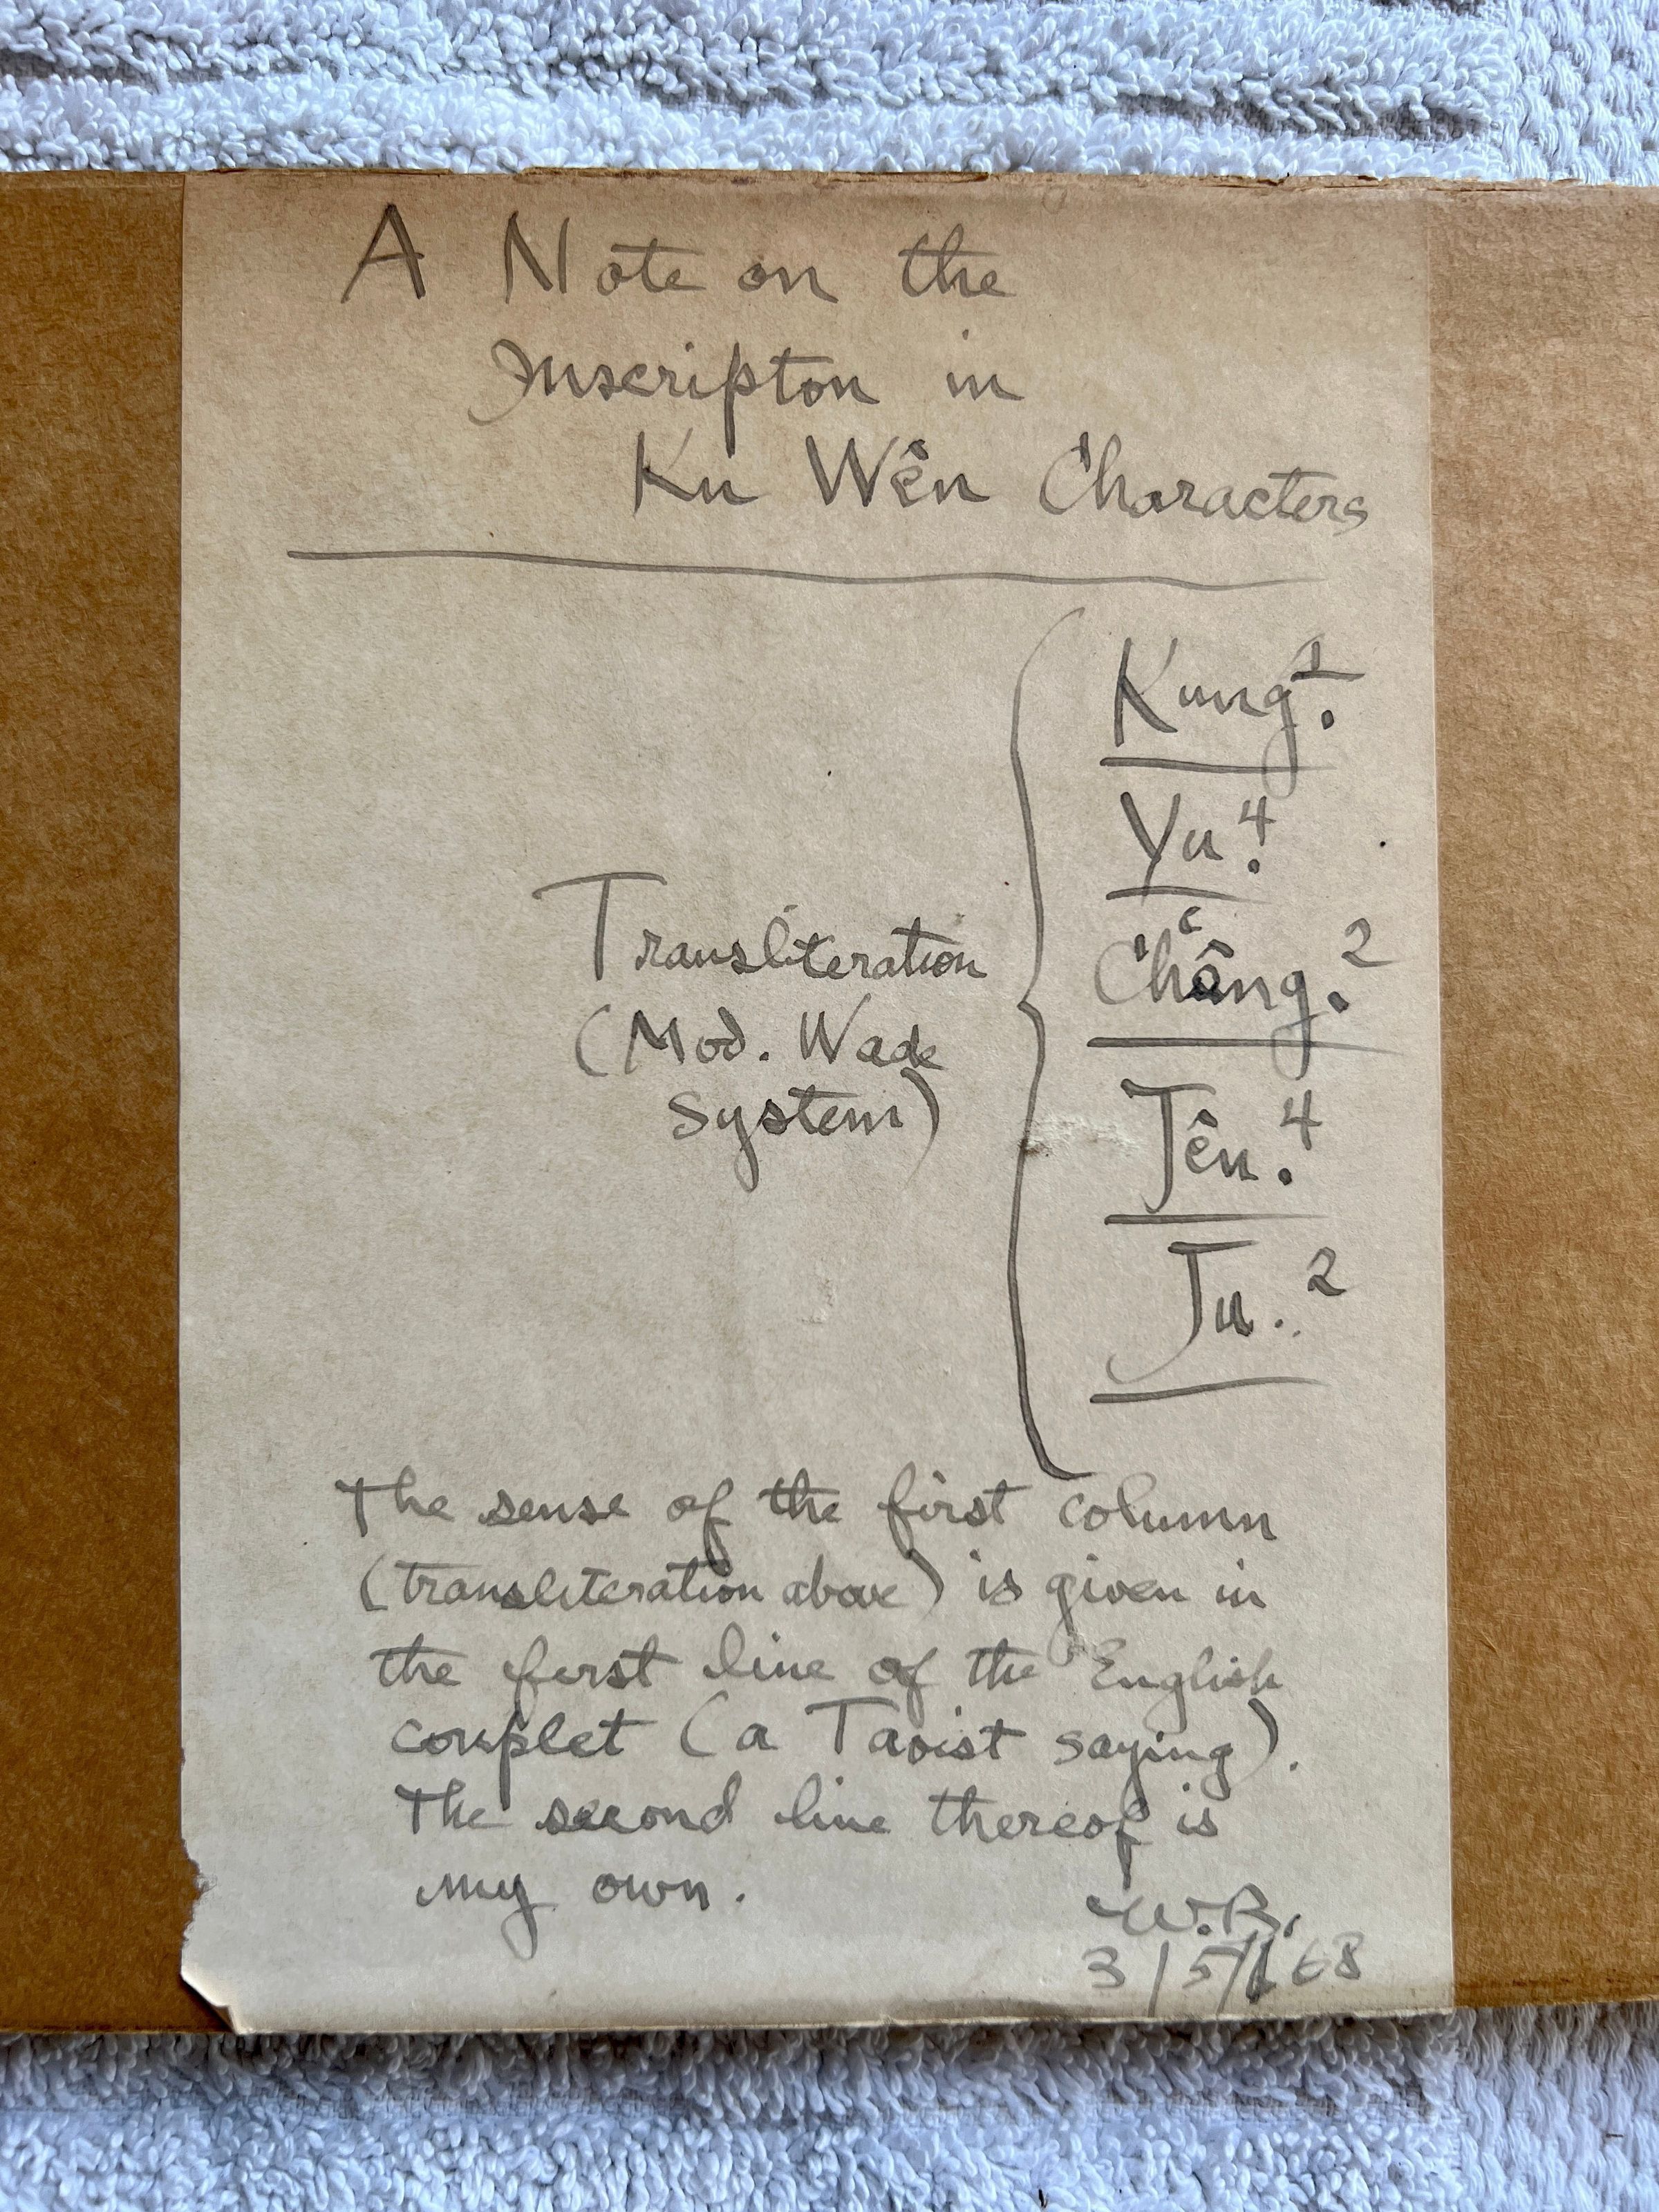 A Note on the
Inscripton in
Ku Wên Characters
Kung.1
Yu.4
Ch'âng.2
Transliteration
(Mod. Wade
System)
Jên.4
Ju.2
The sense of the first column
(transliteration above) is given in
the first line of the English
couplet (a Taoist saying).
The second line thereof is
my own.
W.R.
3/5/68